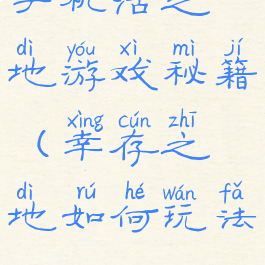 dì yóu xì mì jí
地游戏秘籍
xìng cún zhī
(幸存之
dì rú hé wán fǎ
地如何玩法